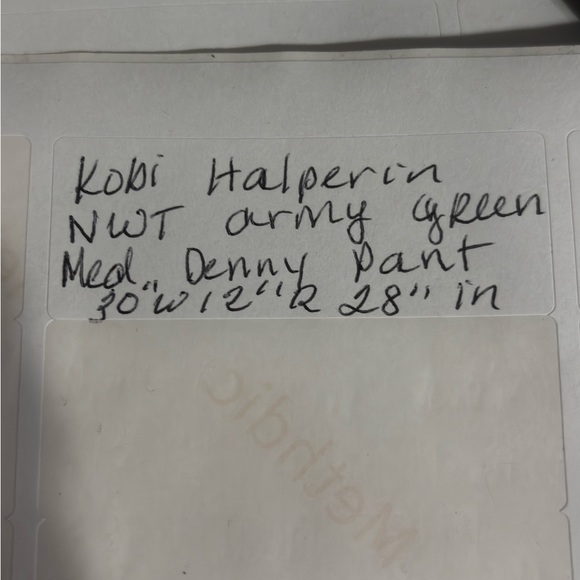 Kobi Halperin
NWT army green
Med. Denny pant
30" W 12" R 28" in
Methdic